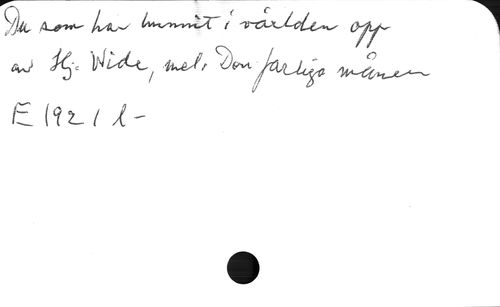 Du som har hunnit i världen opp
av Hj. Wide, mel. Den farliga månen
E 1921 l -